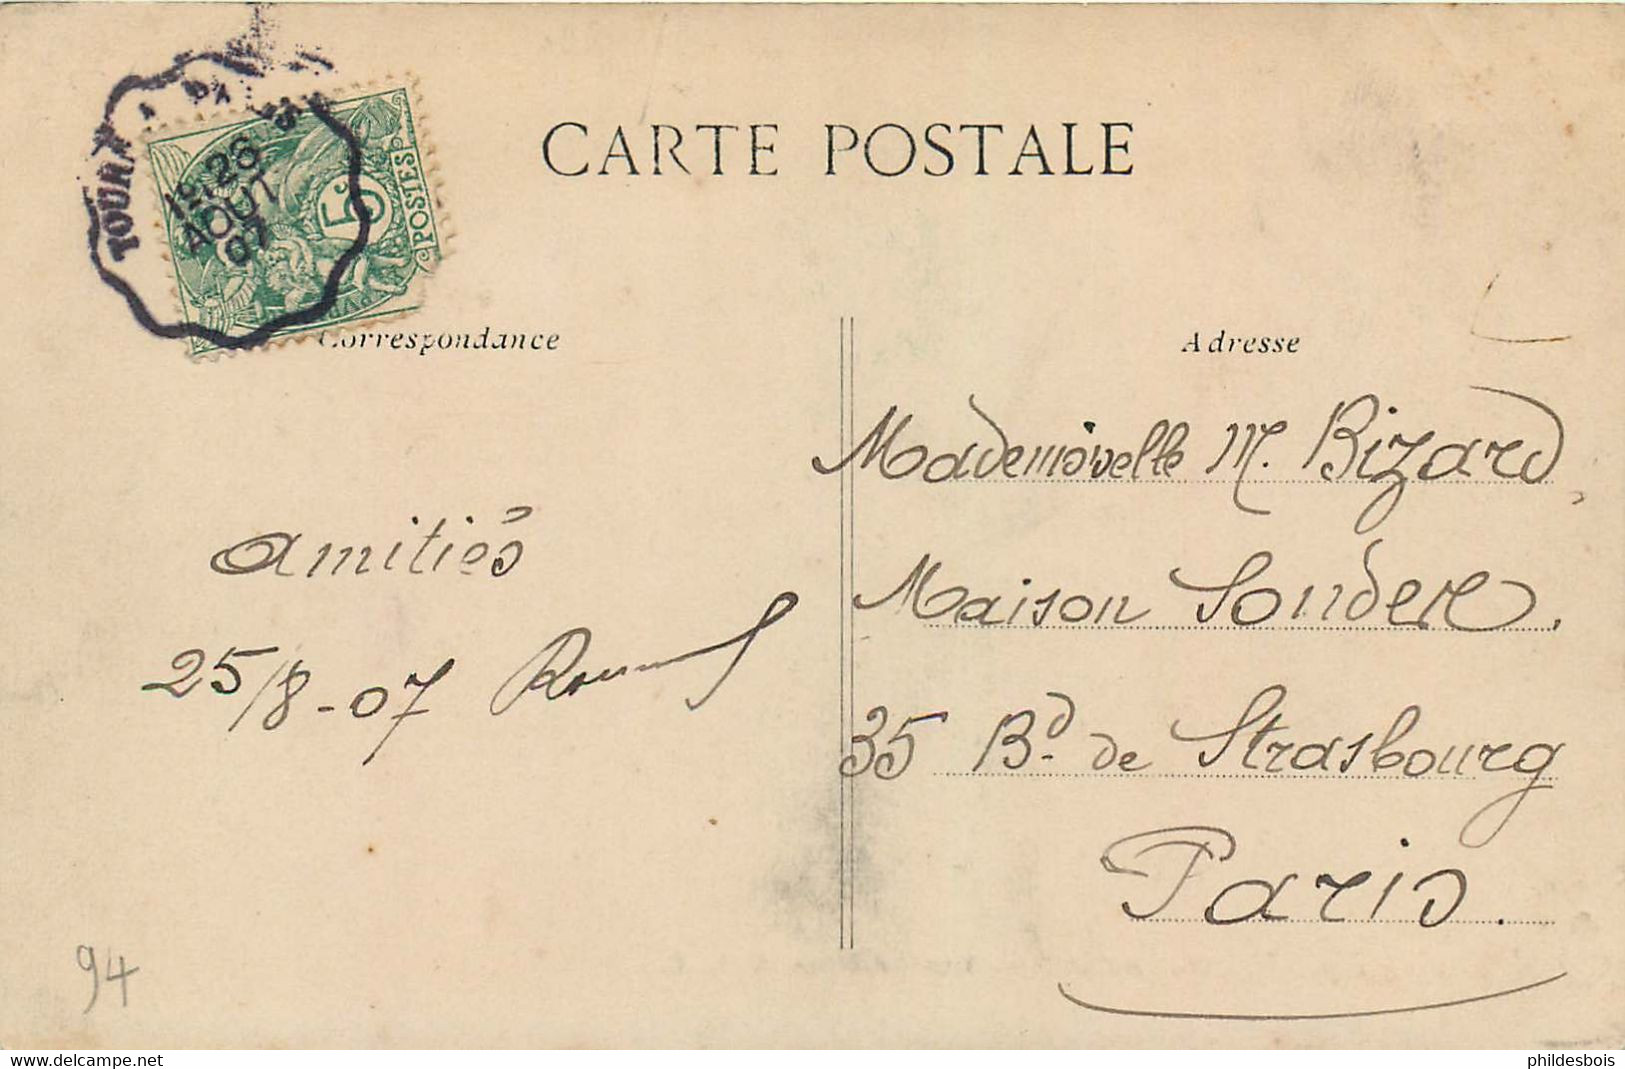 CARTE POSTALE
TOURN A PARIS
1º 26
AOUT
07
5c
POSTES
Correspondance
Adresse
Amitiés
25/8-07
Mademoiselle M. Bizard,
Maison Sonder.
35 Bd. de Strasbourg
Paris.
94
www.delcampe.net
phildesbois